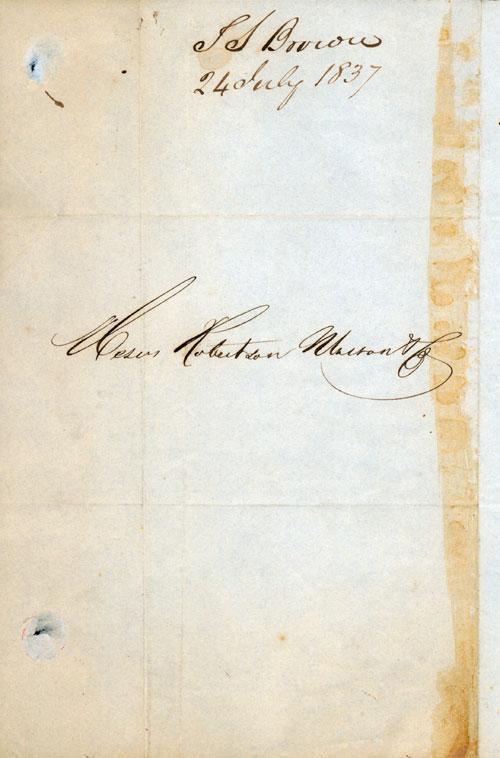 T S Brown
24 July 1837
Messrs Robertson Masson & Co